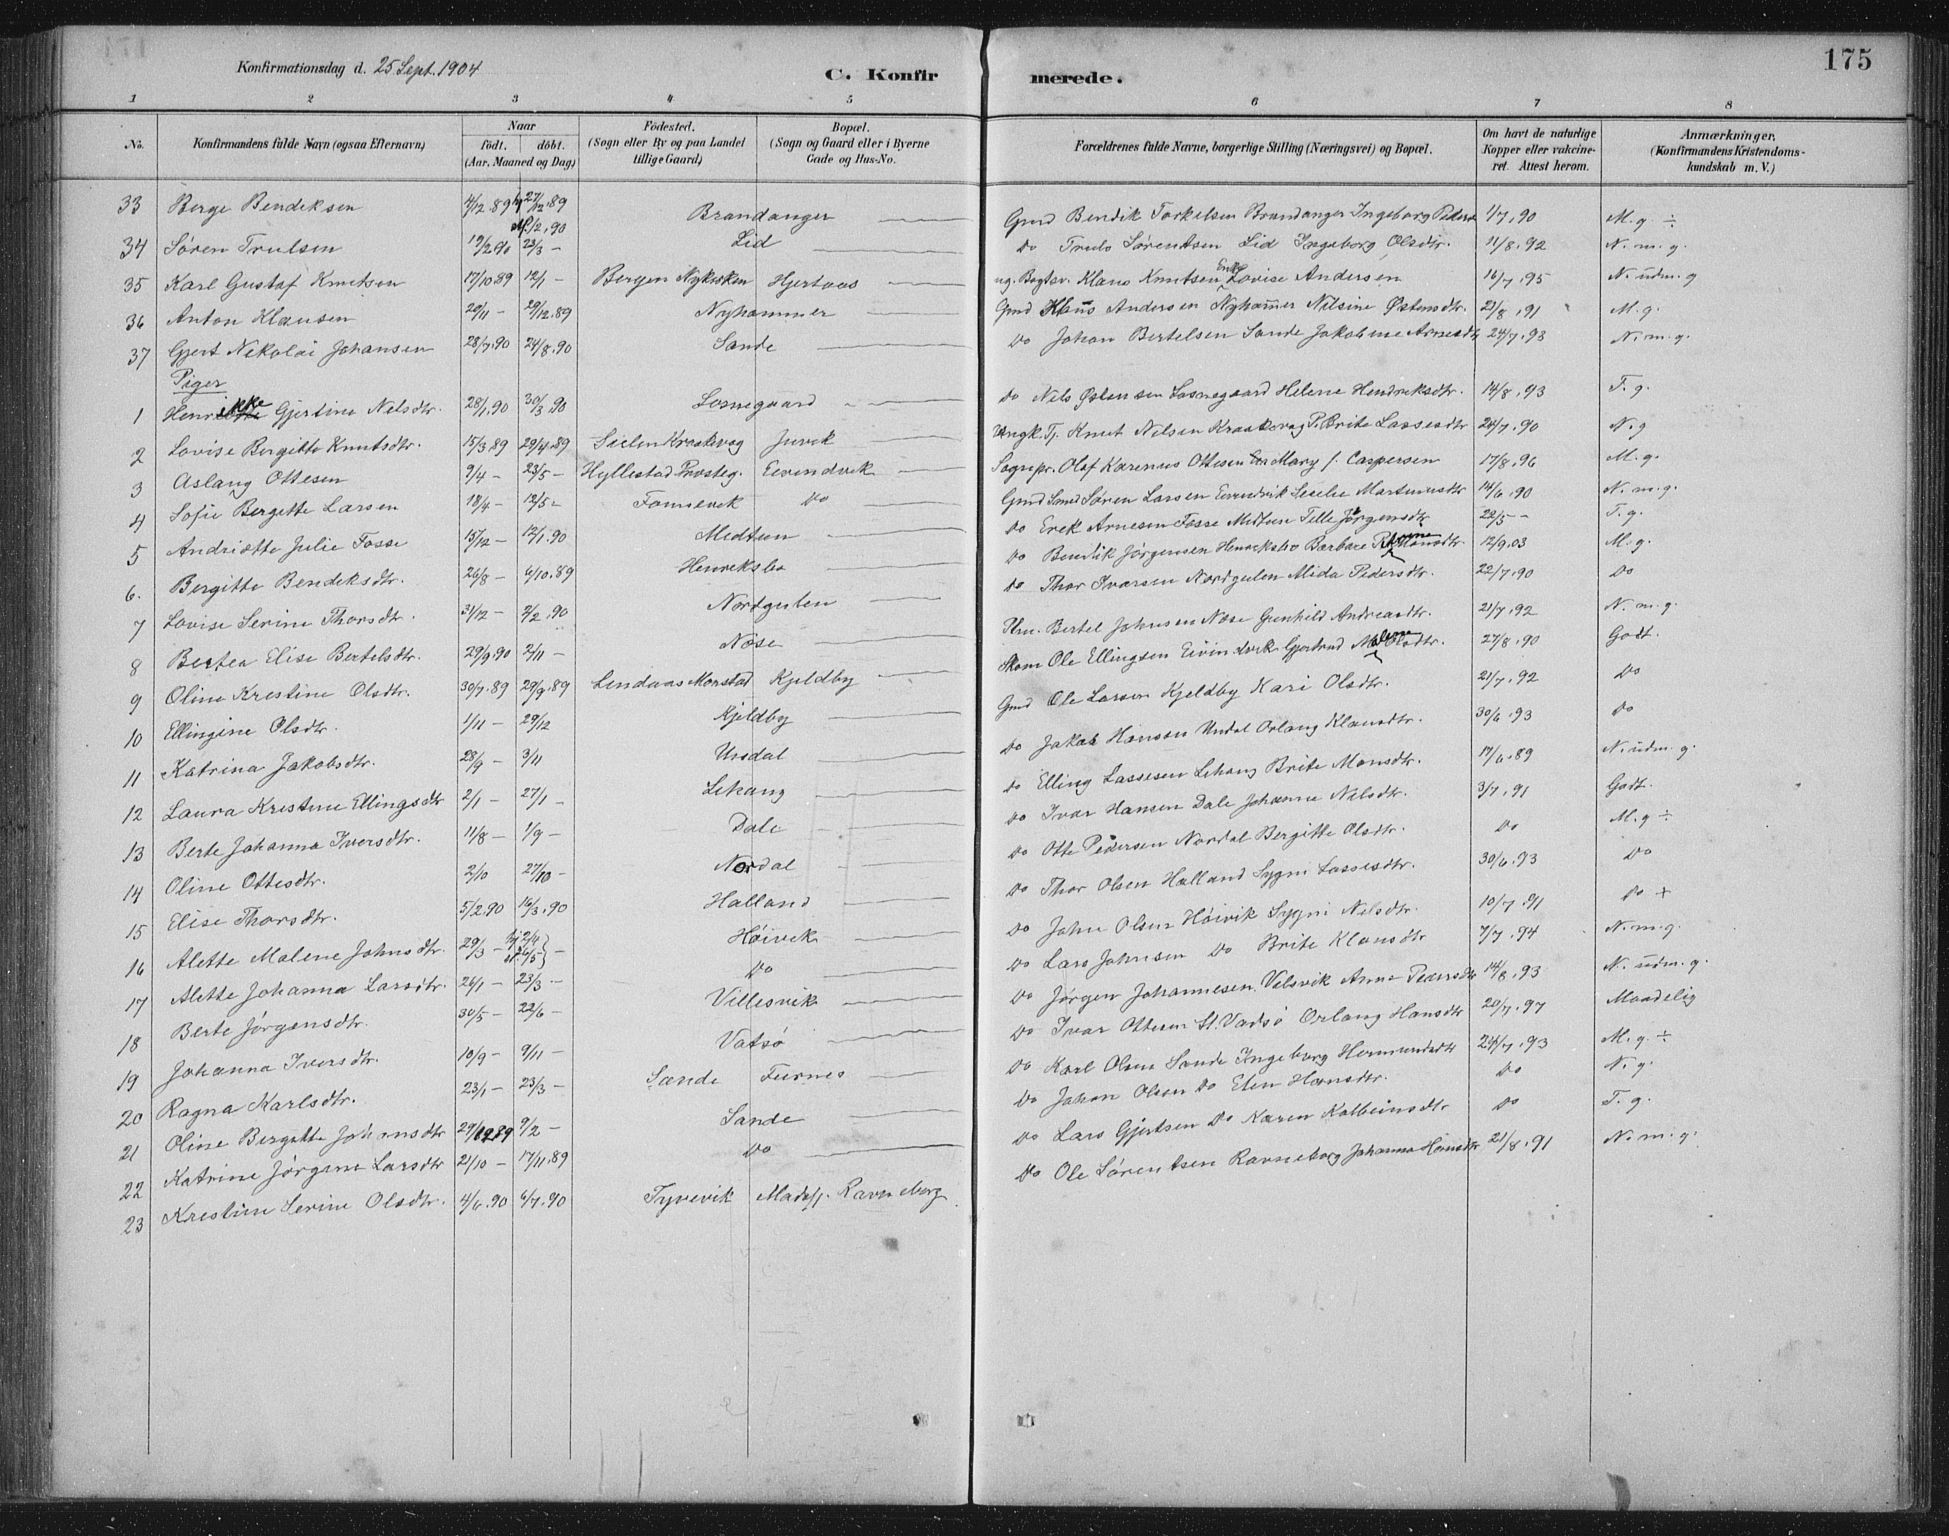 175
Konfirmationsdag d. 25 Sept. 1904
C. Konfirmerede.
1 2 3 4 5 6 7 8
No. Konfirmandens fulde Navn (ogsaa Efternavn) Naar født. døbt. (Aar, Maaned og Dag) Fødested. (Sogn eller By og paa Landet tillige Gaard) Bopæl. (Sogn og Gaard eller i Byerne Gade og Hus-No. Forældrenes fulde Navne, borgerlige Stilling (Næringsvei) og Bopæl. Om havt de naturlige Kopper eller vakcineret. Attest herom. Anmærkninger. (Konfirmandens Kristendomskundskab m. V.)
33 Berge Bendiksen 4/12.89 27/12.89 1/2.90 Brandanger Gmd Bendik Torkelsen Brandanger Ingeborg Peders 1/7.90 M.g. ÷
34 Søren Trulsen 19/2.90 23/3 – Lid Do Truls Sørentsen Lid Ingeborg Olsdtr. 11/8.92 N.m.g.
35 Karl Gustaf Knutsen 17/10.89 12/1 – Bergen Nykirken Hjertaas Klaus Knutsen Enke Lovise Andersen 16/7.95 N. udm. g
36 Anton Klausen 22/11 – 29/12.89 Nyhammer Gmd Klaus Andersen Nyhammer Nilsine Østensdtr. 21/8.91 M.g.
37 Gjert Nikolai Johansen 28/7.90 24/8.90 Sande Do Johan Bertelsen Sande Jakobine Arnesdtr 24/7.93 N.m.g.
Piger
1 Henrikke Gjertine Nelsdtr. 28/1.90 30/3.90 Losnegaard Do Nils Østensen Losnegaard Helene Hendriksdtr. 14/8.93 T.g.
2 Lovise Bergitte Knutsdtr. 15/3.89 29/4.89 Juvik Ungk. Tj. Knut Nilsen Kraakevag P. Brite Lassesdtr 24/7.90 N.g
3 Aslaug Ottesen 9/4 – 23/5 – Hyllestad Præsteg. Eivindvik Sogepr. Olaf Karenus Ottesen Mary f. Caspersen 17/8.96 M.g.
4 Sofie Bergette Larsen 18/4 – 12/5 – Do Gmd Søren Larsen Eivindvik Martinusdtr 14/6.90 N.m.g.
5 Andriette Julie Fosse 15/12 – 12/1.90 Midtun Do Erik Arnesen Fosse Midtun Jørgensdtr 22/5 – T.g.
6. Bergitte Bendeksdtr. 26/8 – 6/10.89 Henriksbo Do Bendik Jørgensen Henriksbo Barbare Monsdtr. 12/9.03 M.g.
7 Lovise Serine Thorsdtr. 31/12 – 2/2.90 Nordgulen Do Thor Ivarsen Nordgulen Pedersdtr. 22/7.90 Do
8 Bertea Elise Bertelsdtr. 29/9.90 2/11 – Nose Bertel Johnsen Nose Gunhild Andreasdtr. 21/7.92 N.m.g.
9 Oline Krestine Olsdtr. 30/7.89 29/9.89 Lendaas Monstad Kjeldby Skom Ole Ellingsen Eivindvik Gjertrud Olsdtr. 27/8.90 Godt.
10 Ellingine Olsdtr. 1/11 – 29/12 Kjeldby Gmd Ole Larsen Kjeldby Kari Olsdtr. 21/7.92 Do
11 Katrina Jakobsdtr. 28/9 – 3/11 Undal Do Jakob Hansen Undal Orlaug Klausdtr. 30/6.93 Do
12 Laura Kristine Ellingsdtr 2/1 – 27/1 – Lihaug Do Elling Lassesen Lihaug Brite Monsdtr. 17/6.89 N. udm. g.
13 Berte Johanna Iversdtr. 11/8 – 1/9 – Dale Do Ivar Hansen Dale Johanne Nelsdtr. 3/7.91 Godt.
14 Oline Ottesdtr. 2/10 27/10 – Nordal Do Otte Pedersen Nordal Bergitte Olsdtr. Do M.g ÷
15 Elise Thorsdtr. 5/2.90 16/3.90 Halland Do Thor Olsen Halland Sygni Lassesdtr. 30/6.93 Do
16 Alette Malene Johnsdtr. 29/3 – 2/4 26/5 – Høivik Do John Olsen Høivik Sygni Nelsdtr. 10/7.91 Do +
17 Alette Johanna Larsdtr. 26/1 – 23/3 – Do Do Lars Johnsen Do Brite Klausdtr 7/7.94 N.m.g.
18 Berte Jørgensdtr. 30/5 – 22/6 – Villesvik Do Jørgen Johannesen Velsvik Anne Pedersdtr 14/8.93 N. udm. g.
19 Johanna Iversdtr. 10/9 – 9/11 – Vatsø Do Ivar Ottesen St. Vadsø Orlaug Hansdtr 20/7.97 Maadelig
20 Ragna Karlsdtr. 23/1 – 23/3 – Sande Furnes Do Karl Olsen Sande Ingeborg Hermundsdtr 24/7.93 M.g. ÷
21 Oline Bergitte Johansdtr 29/12 89 9/2 – Sande Do Johan Olsen Do Elen Hansdtr. Do N.g.
22 Katrine Jørgine Larsdtr 21/10 – 17/11.89 Do Do Lars Gjertsen Do Karen Kolbeinsdtr Do T.g.
23 Krestine Serine Olsdtr. 4/6.90 6/7.90 Tyvevik Ravneberg Do Ole Sørentsen Ravneberg Johanna Hansdtr 21/8.91 N.m.g.